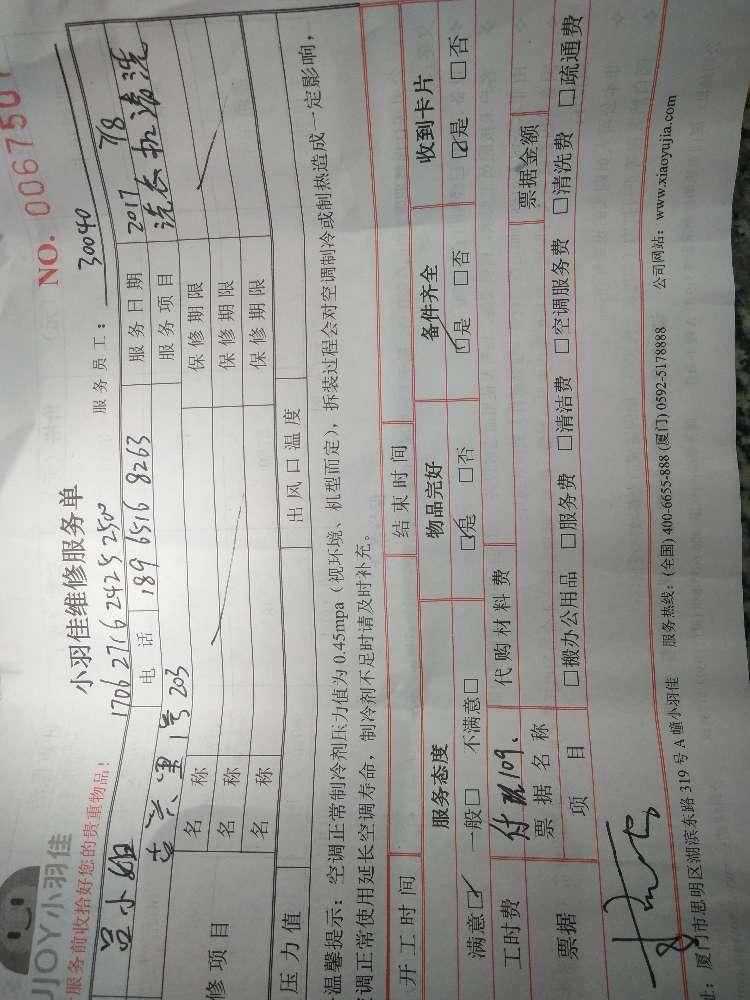 JJOY小羽佳
NO. 0067501
小羽佳维修服务单
服务前收拾好您的贵重物品!
服务员工: 30040
吕小姐 1706271624252500 服务日期 2017 7/8
电话 189 6516 8263 服务项目 洗衣机清洗
1号203
修项目 名称 保修期限
名称 保修期限
名称 保修期限
压力值 出风口温度
温馨提示: 空调正常制冷剂压力值为0.45mpa (视环境、机型而定), 拆装过程会对空调制冷或制热造成一定影响,
调正常使用延长空调寿命, 制冷剂不足时请及时补充。
开工时间 结束时间
服务态度 物品完好 备件齐全 收到卡片
满意☑ 一般□ 不满意□ ☑是 □否 ☑是 □否 ☑是 □否
工时费 付现109. 代购材料费
票据 票据名称 票据金额
项目 □搬办公用品 □服务费 □清洁费 □空调服务费 □清洗费 □疏通费
址: 厦门市思明区湖滨东路319号A幢小羽佳 服务热线: (全国) 400-6655-888 (厦门) 0592-5178888 公司网站: www.xiaoyujia.com